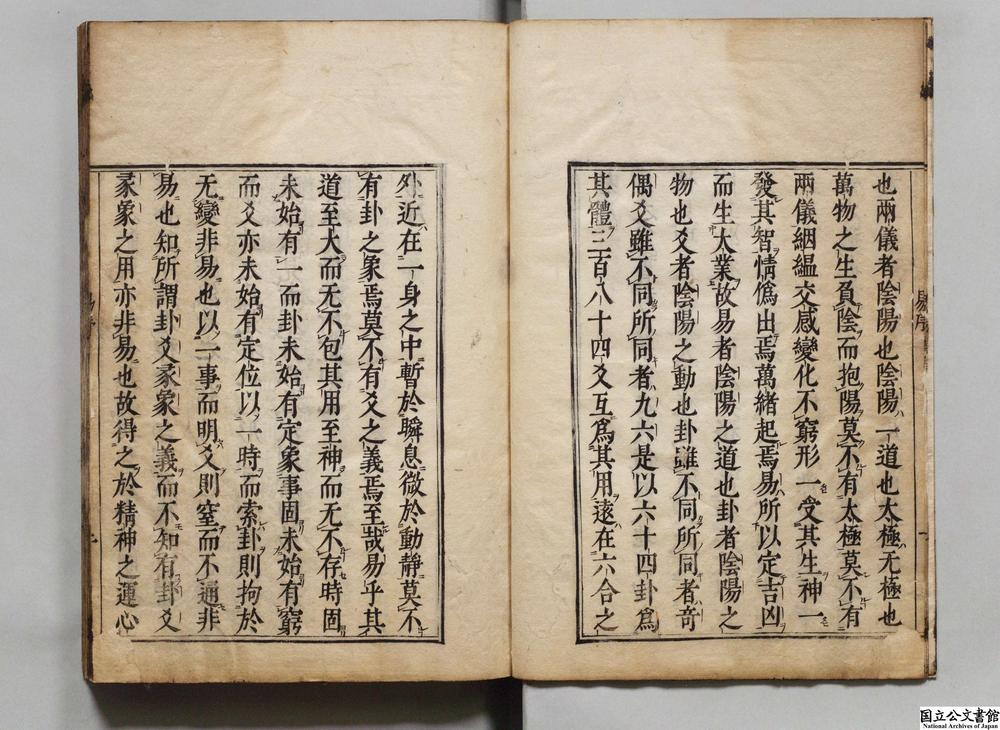 也兩儀者陰陽也陰陽一道也太極无極也
萬物之生負陰而抱陽莫不有太極莫不有
兩儀絪縕交感變化不窮形一受其生神一
發其智情僞出焉萬緒起焉易所以定吉凶
而生大業故易者陰陽之道也卦者陰陽之
物也爻者陰陽之動也卦雖不同所同者奇
偶爻雖不同所同者九六是以六十四卦爲
其體三百八十四爻互爲其用遠在六合之
外近在一身之中暫於瞬息微於動靜莫不
有卦之象焉莫不有爻之義焉至哉易乎其
道至大而无不包其用至神而无不存時固
未始有一而卦未始有定象事固未始有窮
而爻亦未始有定位以一時而索卦則拘於
无變非易也以一事而明爻則窒而不通非
易也知所謂卦爻彖象之義而不知有卦爻
彖象之用亦非易也故得之於精神之運心
易序
国立公文書館
National Archives of Japan